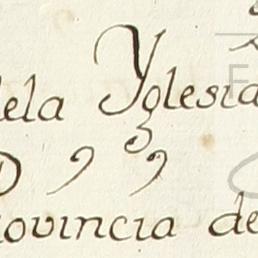 dela Yglesia
ovincia de